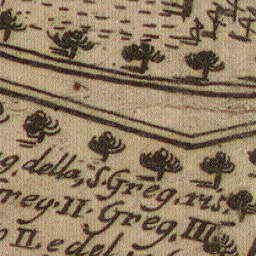 della, S. Greg. ris.
rey II. Greg. III
II. e del